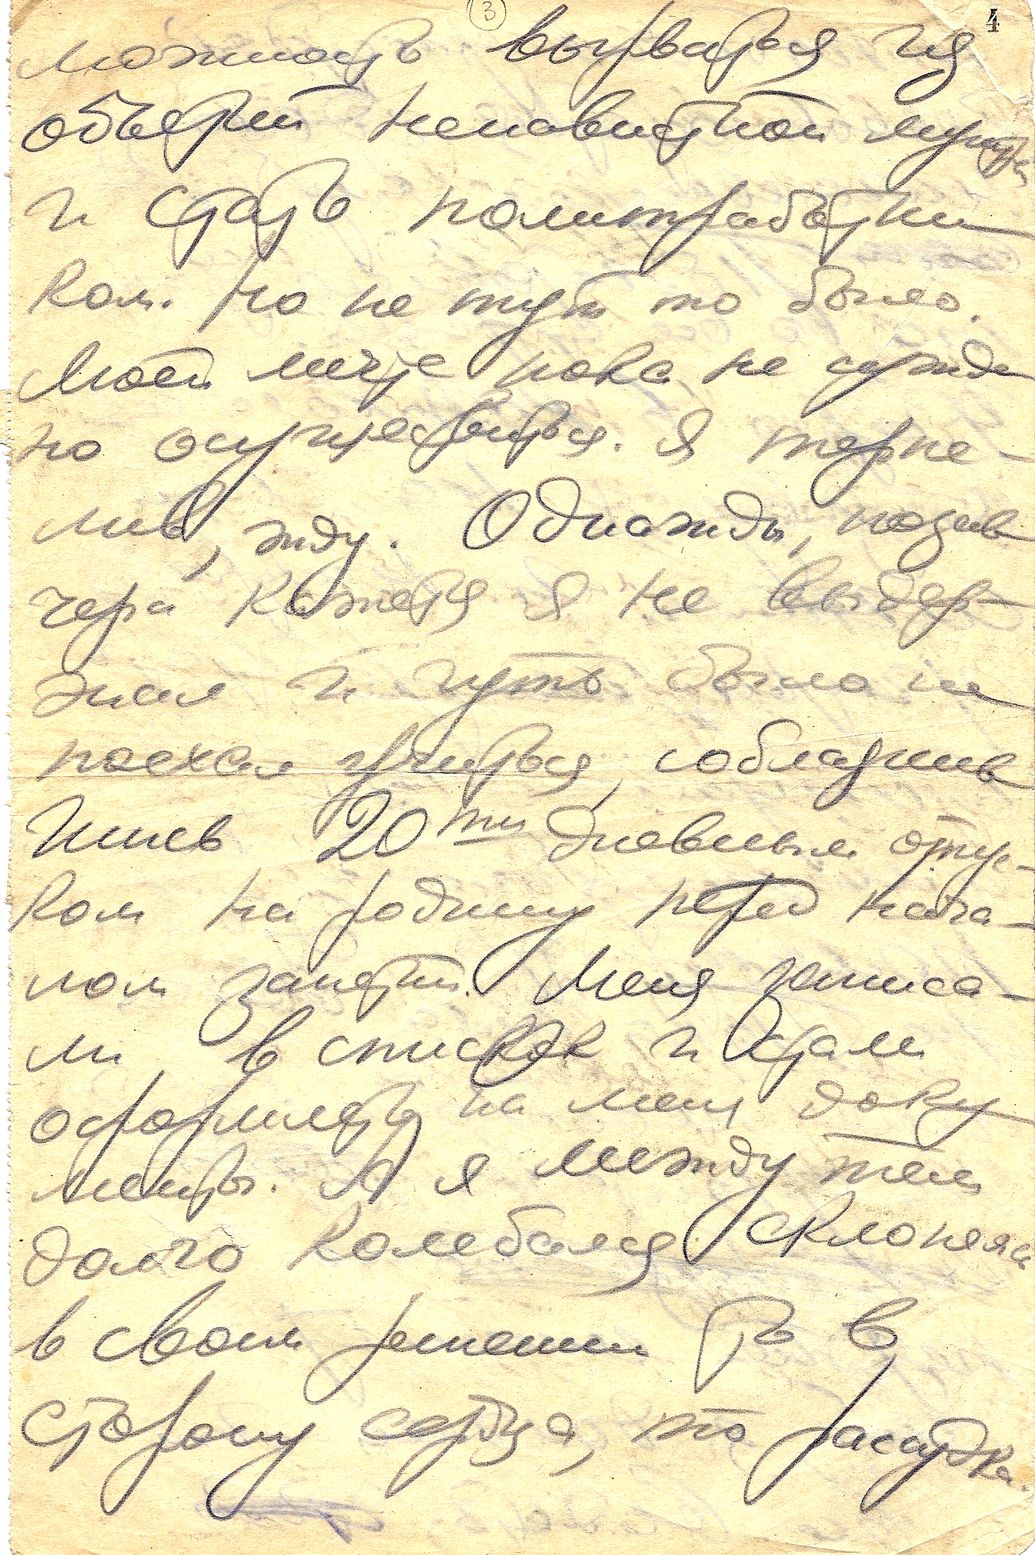 3
4
можность вырваться из
объятий ненавистной
и стать политработни
ком. Но не тут то было.
Моей мечте пока не сужде
но осуществиться. Я терпе-
лив, жду. Однажды, позав
чера кажется я не выдер-
жал и чуть было не
поехал учиться, соблазнив
шись 20ти дневным отпус-
ком на родину перед нача-
лом занятий. Меня записа-
ли в список и стали
оформлять на меня доку
менты. А я между тем
долго колебался склоняясь
в своем решении то в
сторону сердца, то рассудка.